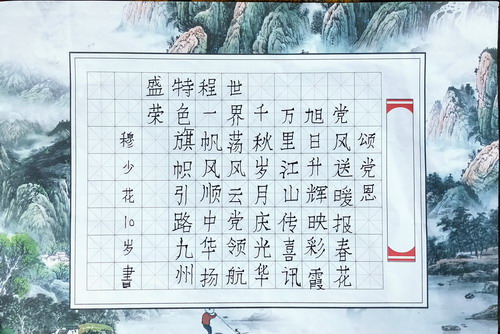 颂党恩
党风送暖报春花
旭日升辉映彩霞
万里江山传喜讯
千秋岁月庆光华
世界荡风云党领航
程一帆风顺中华扬
特色旗帜引路九州
盛荣
穆少花10岁書